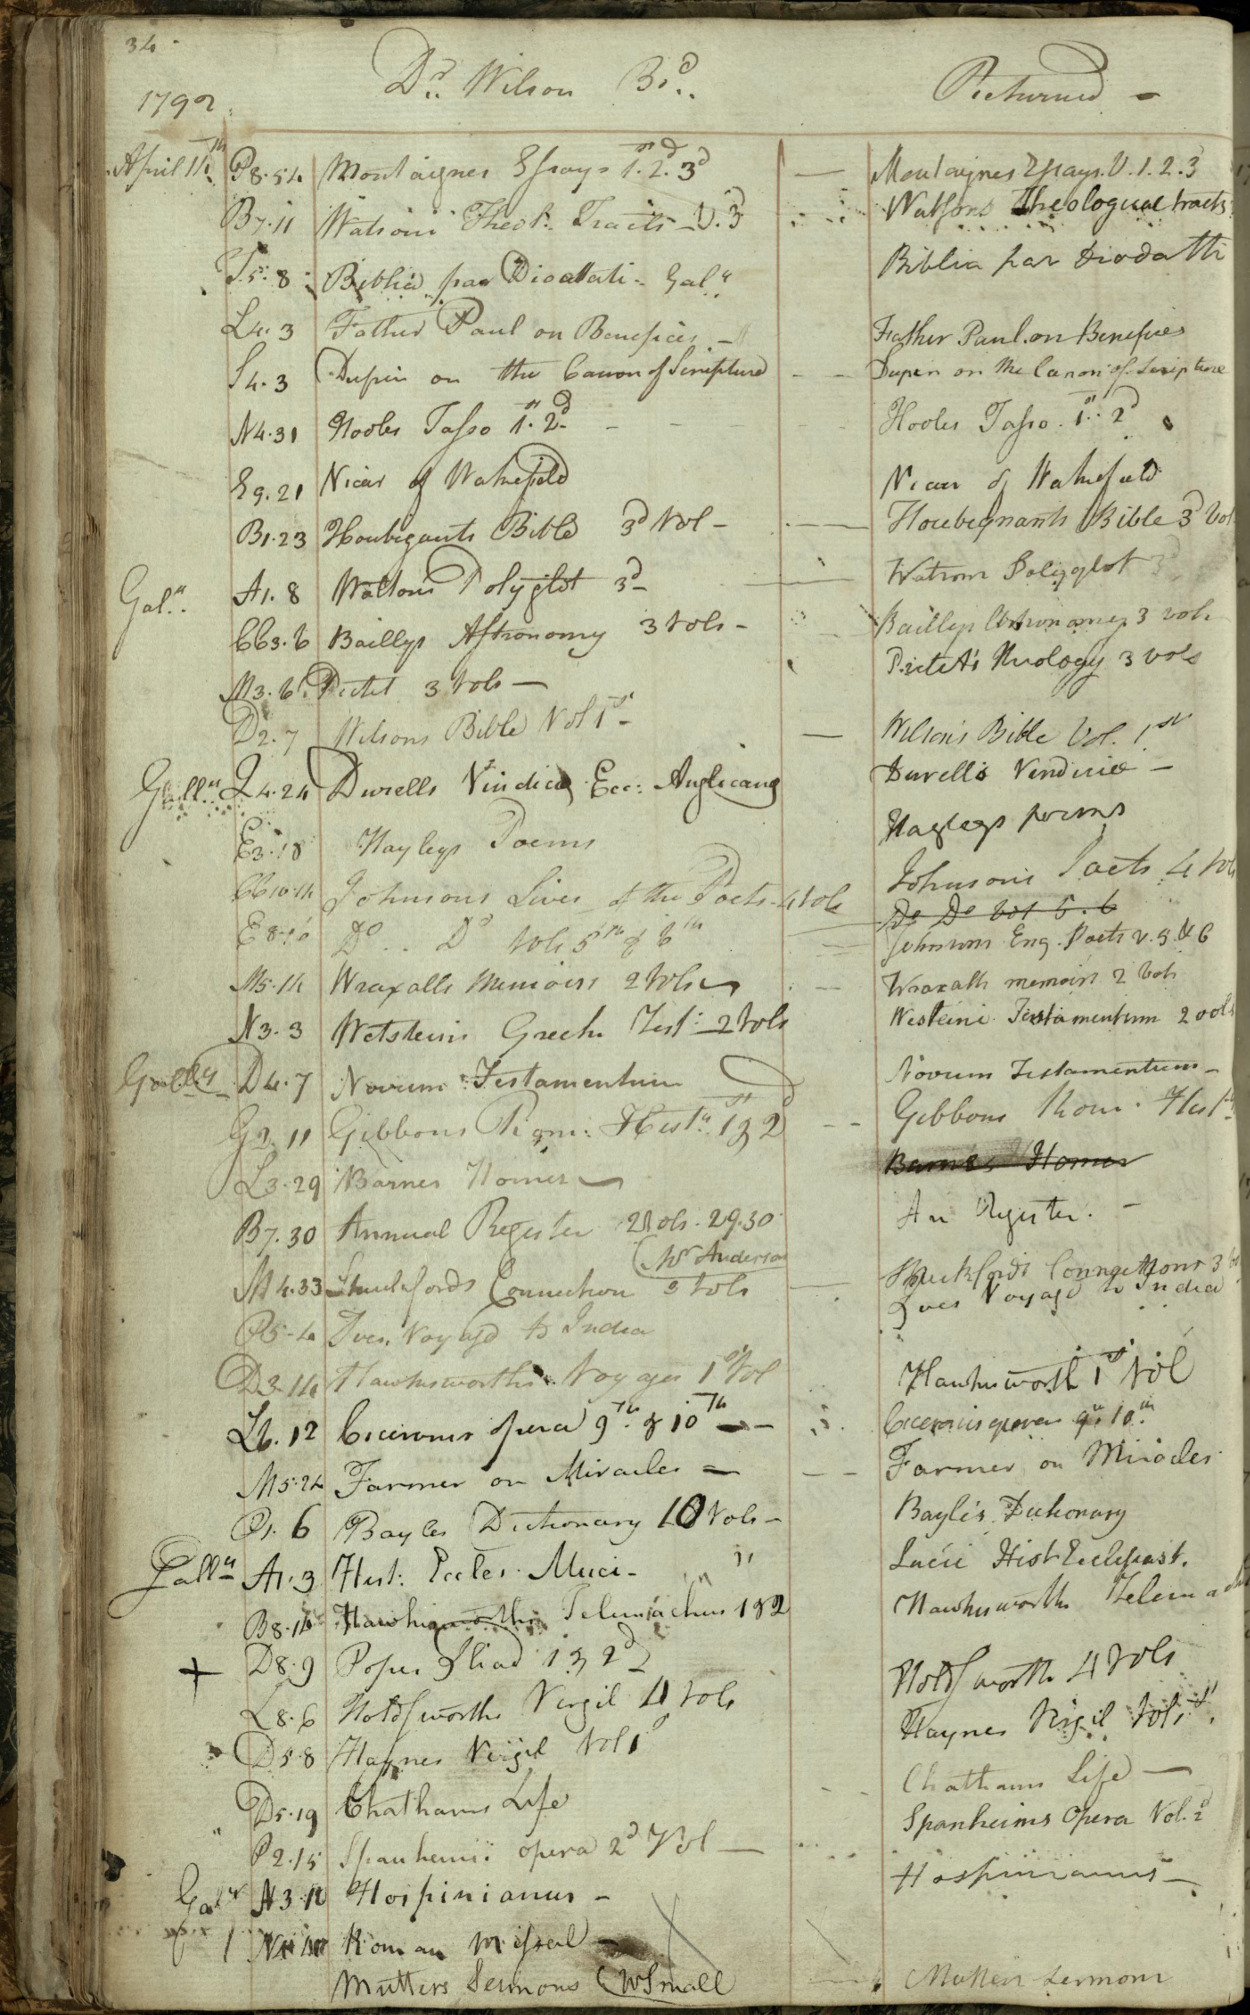 34
Dr. Wilson Bd. Returned -
1792
April 11th P8.54 Montaignes Essays 1st 2d 3d - Montaignes Essays. V. 1. 2. 3
B7.11 Watsons Theol: Tracts - V. 3 Watsons Theological tracts
8 Biblia par Diodati - Galy Biblia par Diodatti
L4.3 Father Paul on Benefices - Father Paul on Benefices
S4.3 Dupin on the Canon of Scripture - - Dupin on the Canon of Scripture
N4.31 Hooles Tasso 1st 2d - Hooles Tasso 1st 2d
E9.21 Vicar of Wakefield Vicar of Wakefield
B1.23 Houbigants Bible 3d Vol - Houbignants Bible 3d Vol
Galy A1.8 Waltons Polyglot 3d - Waltons Polyglot 3d
CC3.6 Baillys Astronomy 3 Vols - Baillys Astronomy 3 vols
M3.6 Pictet 3 Vols - Pictets Theology 3 vols
D2.7 Wilsons Bible Vol 1st - Wilson's Bible Vol. 1st
Gally Q4.24 Durells Vindiciæ Ecc: Anglicanæ Durells Vindiciæ -
E3.18 Hayleys Poems Hayleys poems
CC10.14 Johnsons Lives of the Poets - 4 Vols Johnsons Poets 4 Vols
Do Do Vol 5. 6
E8. Do .. Do Vols 5th & 6th Johnsons Eng. Poets v. 5 & 6
M5.14 Wraxalls Memoirs 2 Vols Wraxalls memoirs 2 Vols
N3.3 Wetsteins Greek Test: 2 Vols Westeini Testamentum 2 vols
D4.7 Novum Testamentum Novum Testamentum -
11 Gibbons Rom: Histy 1st & 2d - - Gibbons Rom. Hist
L3.29 Barnes Homer Barnes Homer
B7.30 Annual Register 2 Vols. 29.30 An Register. -
(Mr Anderson
M4.33 Shuckfords Connection 3 Vols Shuckfords Connections 3
P5.4 Ives Voyage to India Ives Voyage to India
D3.14 Hawkesworths Voyages 1st Vol Hawkesworth 1st Vol
L6.12 Ciceronis opera 9th & 10th - Ciceronis opera 9th 10th
M5.24 Farmer on Miracles - Farmer on Miracles
P1.6 Bayles Dictionary 10 Vols - Bayle's Dictionary
Gally A1.3 Hist: Eccles. Lucii - Lucii Hist Ecclesiast.
B8.16 Hawkesworths Telemachus 1 & 2 Hawkesworths
+ D8.9 Popes Iliad 1 & 2d
L8.6 Holdsworths Virgil 4 Vols Holdsworth 4 Vols
D5.8 Haynes Virgil Vol 1st Haynes Virgil Vol. 1st
D5.19 Chathams Life Chathams Life -
P2.15 Spanhemii opera 2d Vol - Spanheims Opera Vol. 2d
Galy A3.12 Hospinianus - Hospinianus -
Roman Missal -
Mutters Sermons (W Small Mutters Sermons